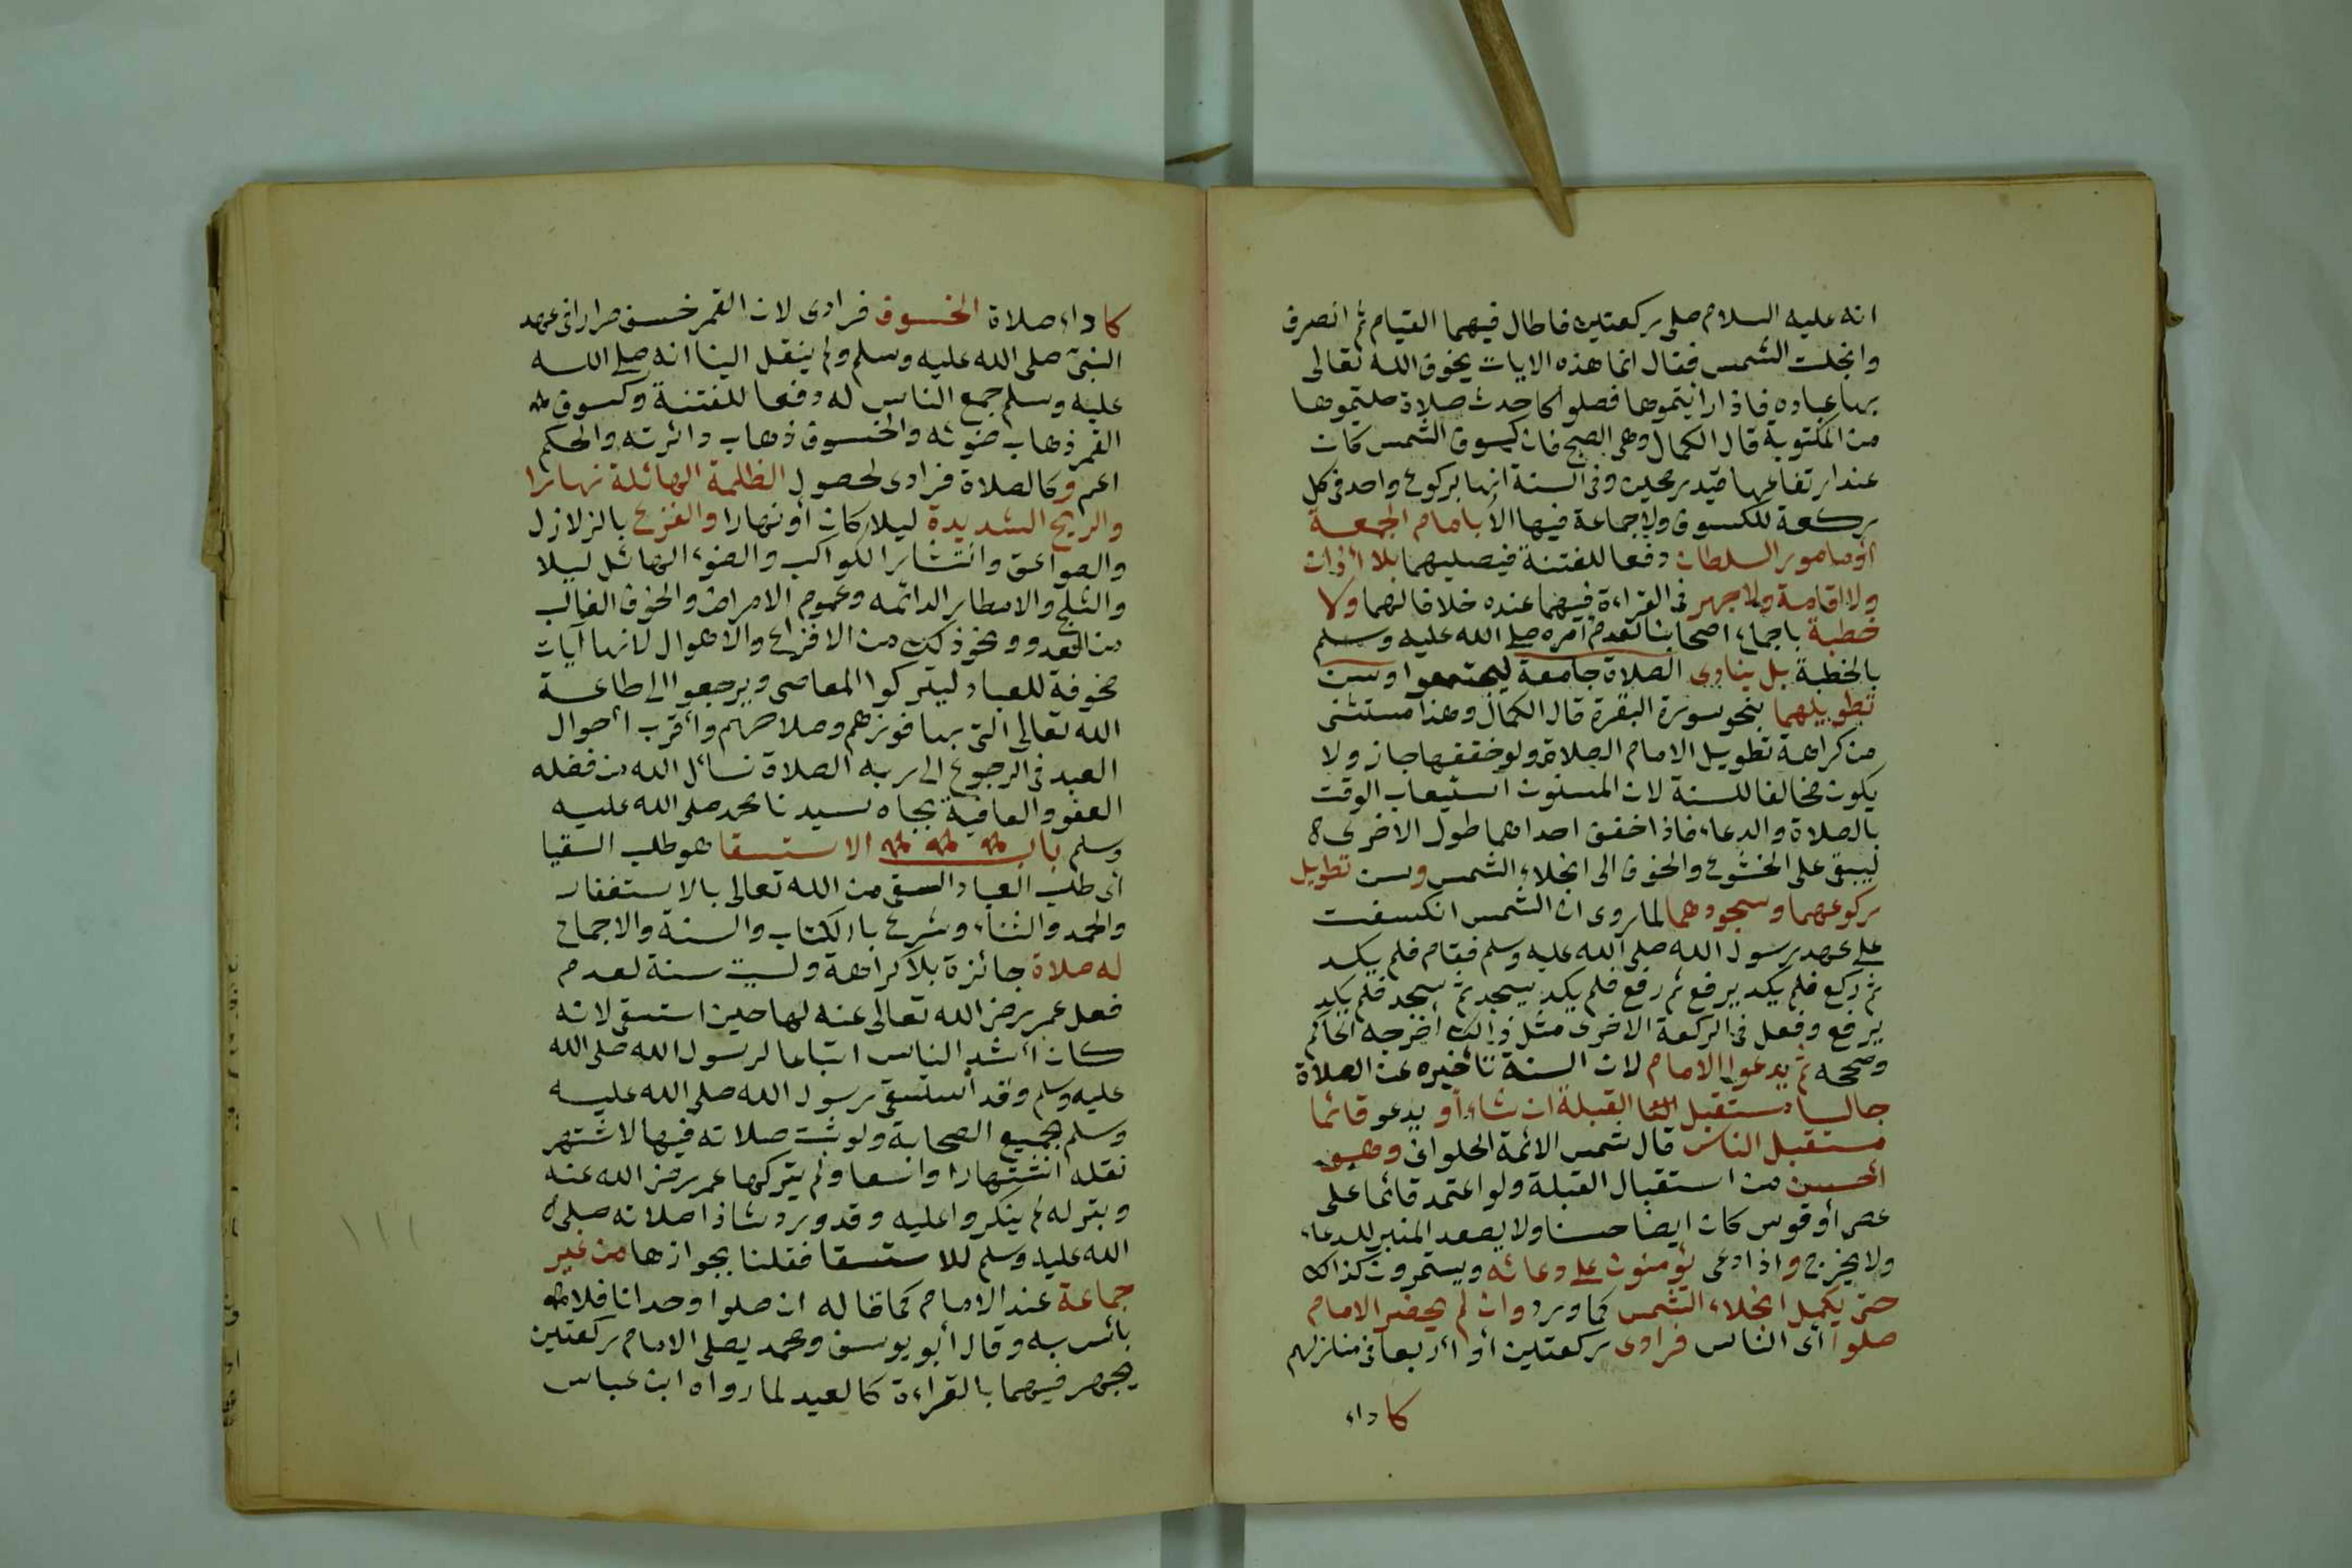 انه عليه السلام صلى ركعتين فاطال فيهما القيام ثم انصرف
وانجلت الشمس فقال انما هذه الايات يخوف الله تعالى
بها عباده فاذا رايتموها فصلوا كاحدث صلاة صليتموها
من المكتوبة قال الكمال وهى الصبح فان كسوف الشمس كان
عند ارتفاعها قيد رمحين وفى السنة انها بركوع واحد فى كل
ركعة للكسوف ولا جماعة فيها الا بامام الجمعة
أو مامور السلطان دفعا للفتنة فيصليهما بلا أذان
ولا اقامة ولا جهر فى القراءة فيهما عنده خلافا لهما ولا
خطبة باجماع اصحابنا لعدم أمره صلى الله عليه وسلم
بالخطبة بل ينادى الصلاة جامعة ليجتمعوا وسن
تطويلهما بنحو سورة البقرة قال الكمال وهذا مستثنى
من كراهة تطويل الامام الصلاة ولو خففها جاز ولا
يكون مخالفا للسنة لان المسنون استيعاب الوقت
بالصلاة والدعاء فاذا خفف احداهما طول الاخرى
ليبقى على الخشوع والخوف الى انجلاء الشمس وسن تطويل
ركوعهما وسجودهما لما روى ان الشمس انكسفت
على عهد رسول الله صلى الله عليه وسلم فقام فلم يكد
ثم ركع فلم يكد يرفع ثم رفع فلم يكد يسجد ثم سجد فلم يكد
يرفع وفعل فى الركعة الاخرى مثل ذلك أخرجه الحاكم
وصححه ثم يدعوا الامام لان السنة تأخيره عن الصلاة
جالسا مستقبل القبلة ان شاء أو يدعو قائما
مستقبل الناس قال شمس الائمة الحلوانى وهو
أحسن من استقبال القبلة ولو اعتمد قائما على
عصى أو قوس كان ايضا حسنا ولا يصعد المنبر للدعاء
ولا يخرج واذا دعى يؤمنون على دعائه ويستمرون كذلك
حتى يكمل انجلاء الشمس كما ورد وان لم يحضر الامام
صلوا أى الناس فرادى ركعتين أو أربعا فى منازلهم
كاداء
كاداء صلاة الخسوف فرادى لان القمر خسف مرارا فى عهد
النبى صلى الله عليه وسلم ولم ينقل الينا انه صلى الله
عليه وسلم جمع الناس له دفعا للفتنة وكسوف
القمر ذهاب ضوئه والخسوف ذهاب دائرته والحكم
اعم وكالصلاة فرادى لحصول الظلمة الهائلة نهارا
والريح الشديدة ليلا كان أو نهارا والفزع بالزلازل
والصواعق وانتشار الكواكب والضوء الهائل ليلا
والثلج والامطار الدائمه وعموم الامراض والخوف الغالب
من العدو ونحو ذلك من الافزاع والاهوال لانها آيات
مخوفة للعباد ليتركوا المعاصى ويرجعوا الى طاعة
الله تعالى التى بها فوزهم وصلاحهم وأقرب أحوال
العبد فى الرجوع الى ربه الصلاة نسأل الله من فضله
العفو والعافية بجاه سيدنا محمد صلى الله عليه
وسلم باب الاستسقا هو طلب السقيا
أى طلب العباد السقى من الله تعالى بالاستغفار
والحمد والثناء وشرع بالكتاب والسنة والاجماع
له صلاة جائزة بلا كراهة وليست سنة لعدم
فعل عمر رضى الله تعالى عنه لها حين استسقى لانه
كان أشد الناس اتباعا لرسول الله صلى الله
عليه وسلم وقد استسقى رسول الله صلى الله عليه
وسلم بجميع الصحابة ولو ثبت صلاته فيها لاشتهر
نقله اشتهارا واسعا ولم يتركها عمر رضى الله عنه
وبتركه لم ينكروا عليه وقد ورد شاذا صلاته صلى
الله عليه وسلم للاستسقا فقلنا بجوازها من غير
جماعة عند الامام كما قاله ان صلوا وحدانا فلا
بأس به وقال أبو يوسف ومحمد يصلى الامام ركعتين
يجهر فيهما بالقراءة كالعيد لما رواه ابن عباس
١١١